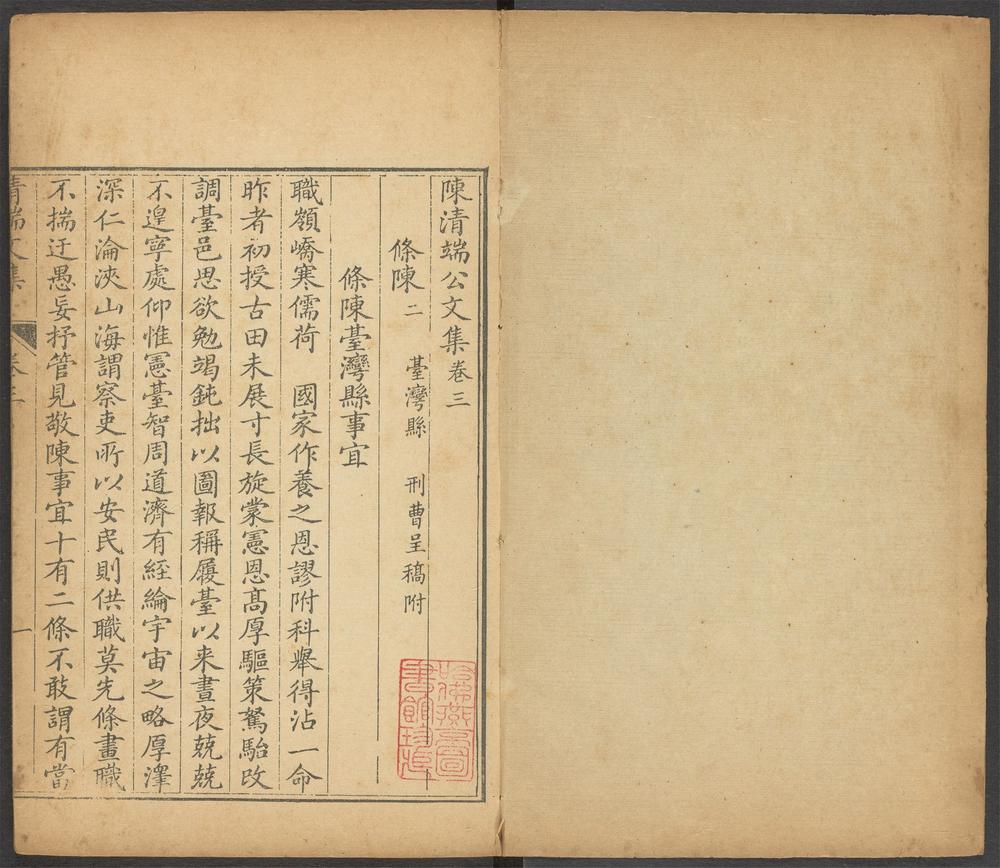 陳清端公文集卷三
條陳二 臺灣縣 刑曹呈稿附
條陳臺灣縣事宜
職嶺嶠寒儒荷 國家作養之恩謬附科舉得沾一命
昨者初授古田未展寸長旋蒙憲恩高厚驅策駑駘改
調臺邑思欲勉竭鈍拙以圖報稱履臺以来晝夜兢兢
不遑寧處仰惟憲臺智周道濟有經綸宇宙之略厚澤
深仁淪浹山海謂察吏所以安民則供職莫先條畫職
不揣迂愚妄抒管見敬陳事宜十有二條不敢謂有當
清端文集 卷三 一
哈佛燕京圖書館珍藏